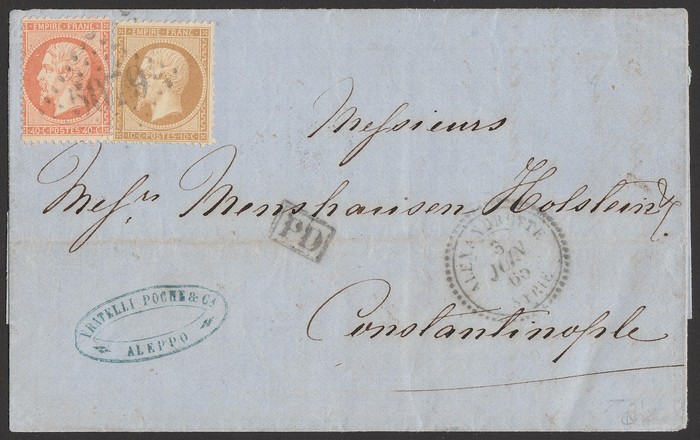 EMPIRE FRANC
40·C·POSTES·40·C
EMPIRE FRANC
10·C·POSTES·10·C
Messieurs
Mess.rs Menshausen Holstein & C.
PD
ALEXANDRETTE
5
JUIN
65
SYRIE
Constantinople
FRATELLI POCHE & C.
ALEPPO